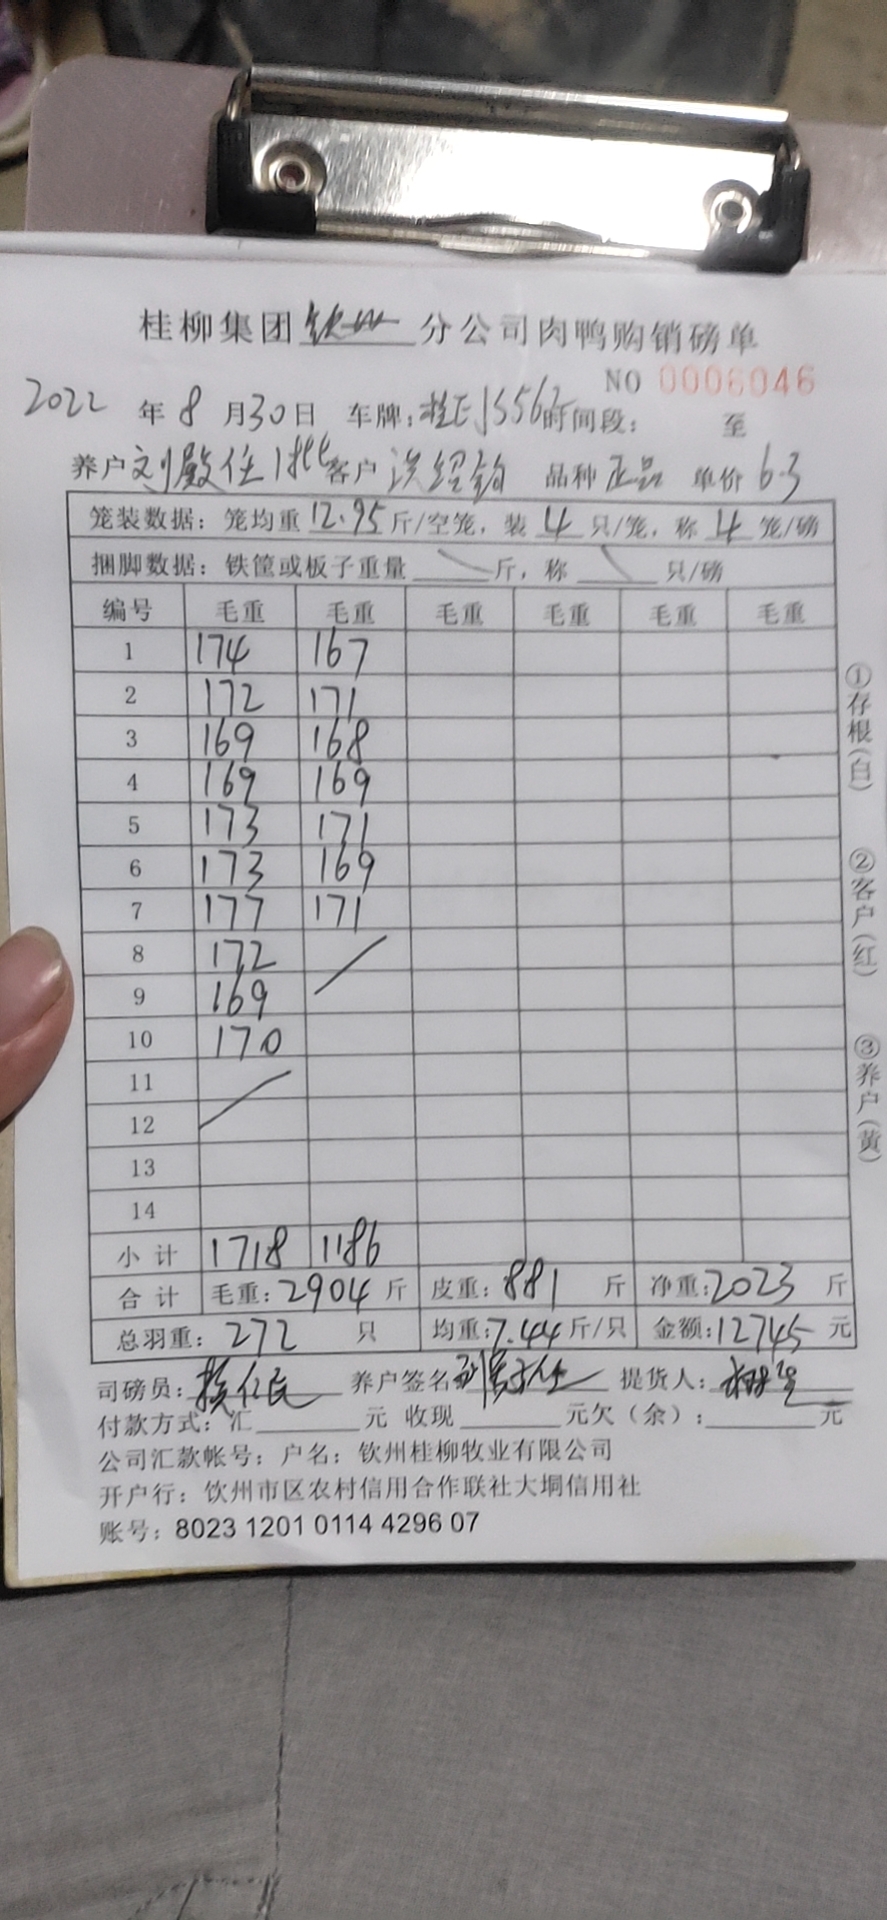 桂柳集团钦州分公司肉鸭购销磅单
NO 0006046
2022年8月30日 车牌: 时间段: 至
养户 刘殿任 1批 客户 洪绍钧 品种 正品 单价 6.3
笼装数据:笼均重12.95斤/空笼,装4只/笼,称4笼/磅
捆脚数据:铁筐或板子重量 斤,称 只/磅
编号 毛重 毛重 毛重 毛重 毛重 毛重
1 174 167
2 172 171
3 169 168
4 169 169
5 173 171
6 173 169
7 177 171
8 172
9 169
10 170
11
12
13
14
小计 1718 1186
合计 毛重:2904斤 皮重:881斤 净重:2023斤
总羽重:272只 均重:7.44斤/只 金额:12745元
司磅员: 养户签名 刘殿任 提货人:
付款方式:汇 元 收现 元欠(余): 元
公司汇款帐号:户名:钦州桂柳牧业有限公司
开户行:钦州市区农村信用合作联社大垌信用社
账号:8023 1201 0114 4296 07
①存根(白) ②客户(红) ③养户(黄)